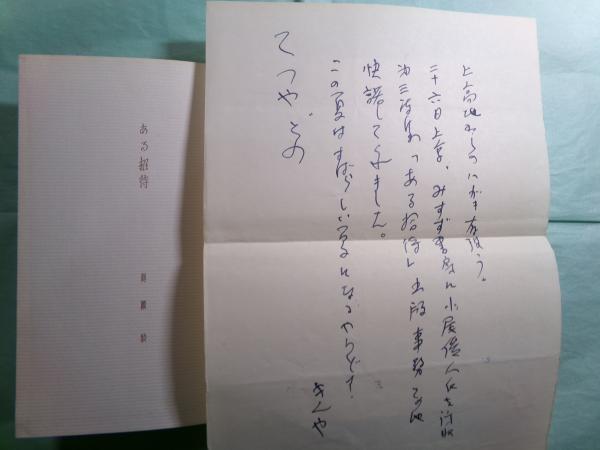 上高地からのハガキ有難う。
二十六日上京、みすず書房に小尾俊人氏を訪ね
第三詩集「ある招待」出版事務その他
快諾してくれました。
この夏はすばらしい夏になるやうだぞ!
きんや
てつやどの
ある招待